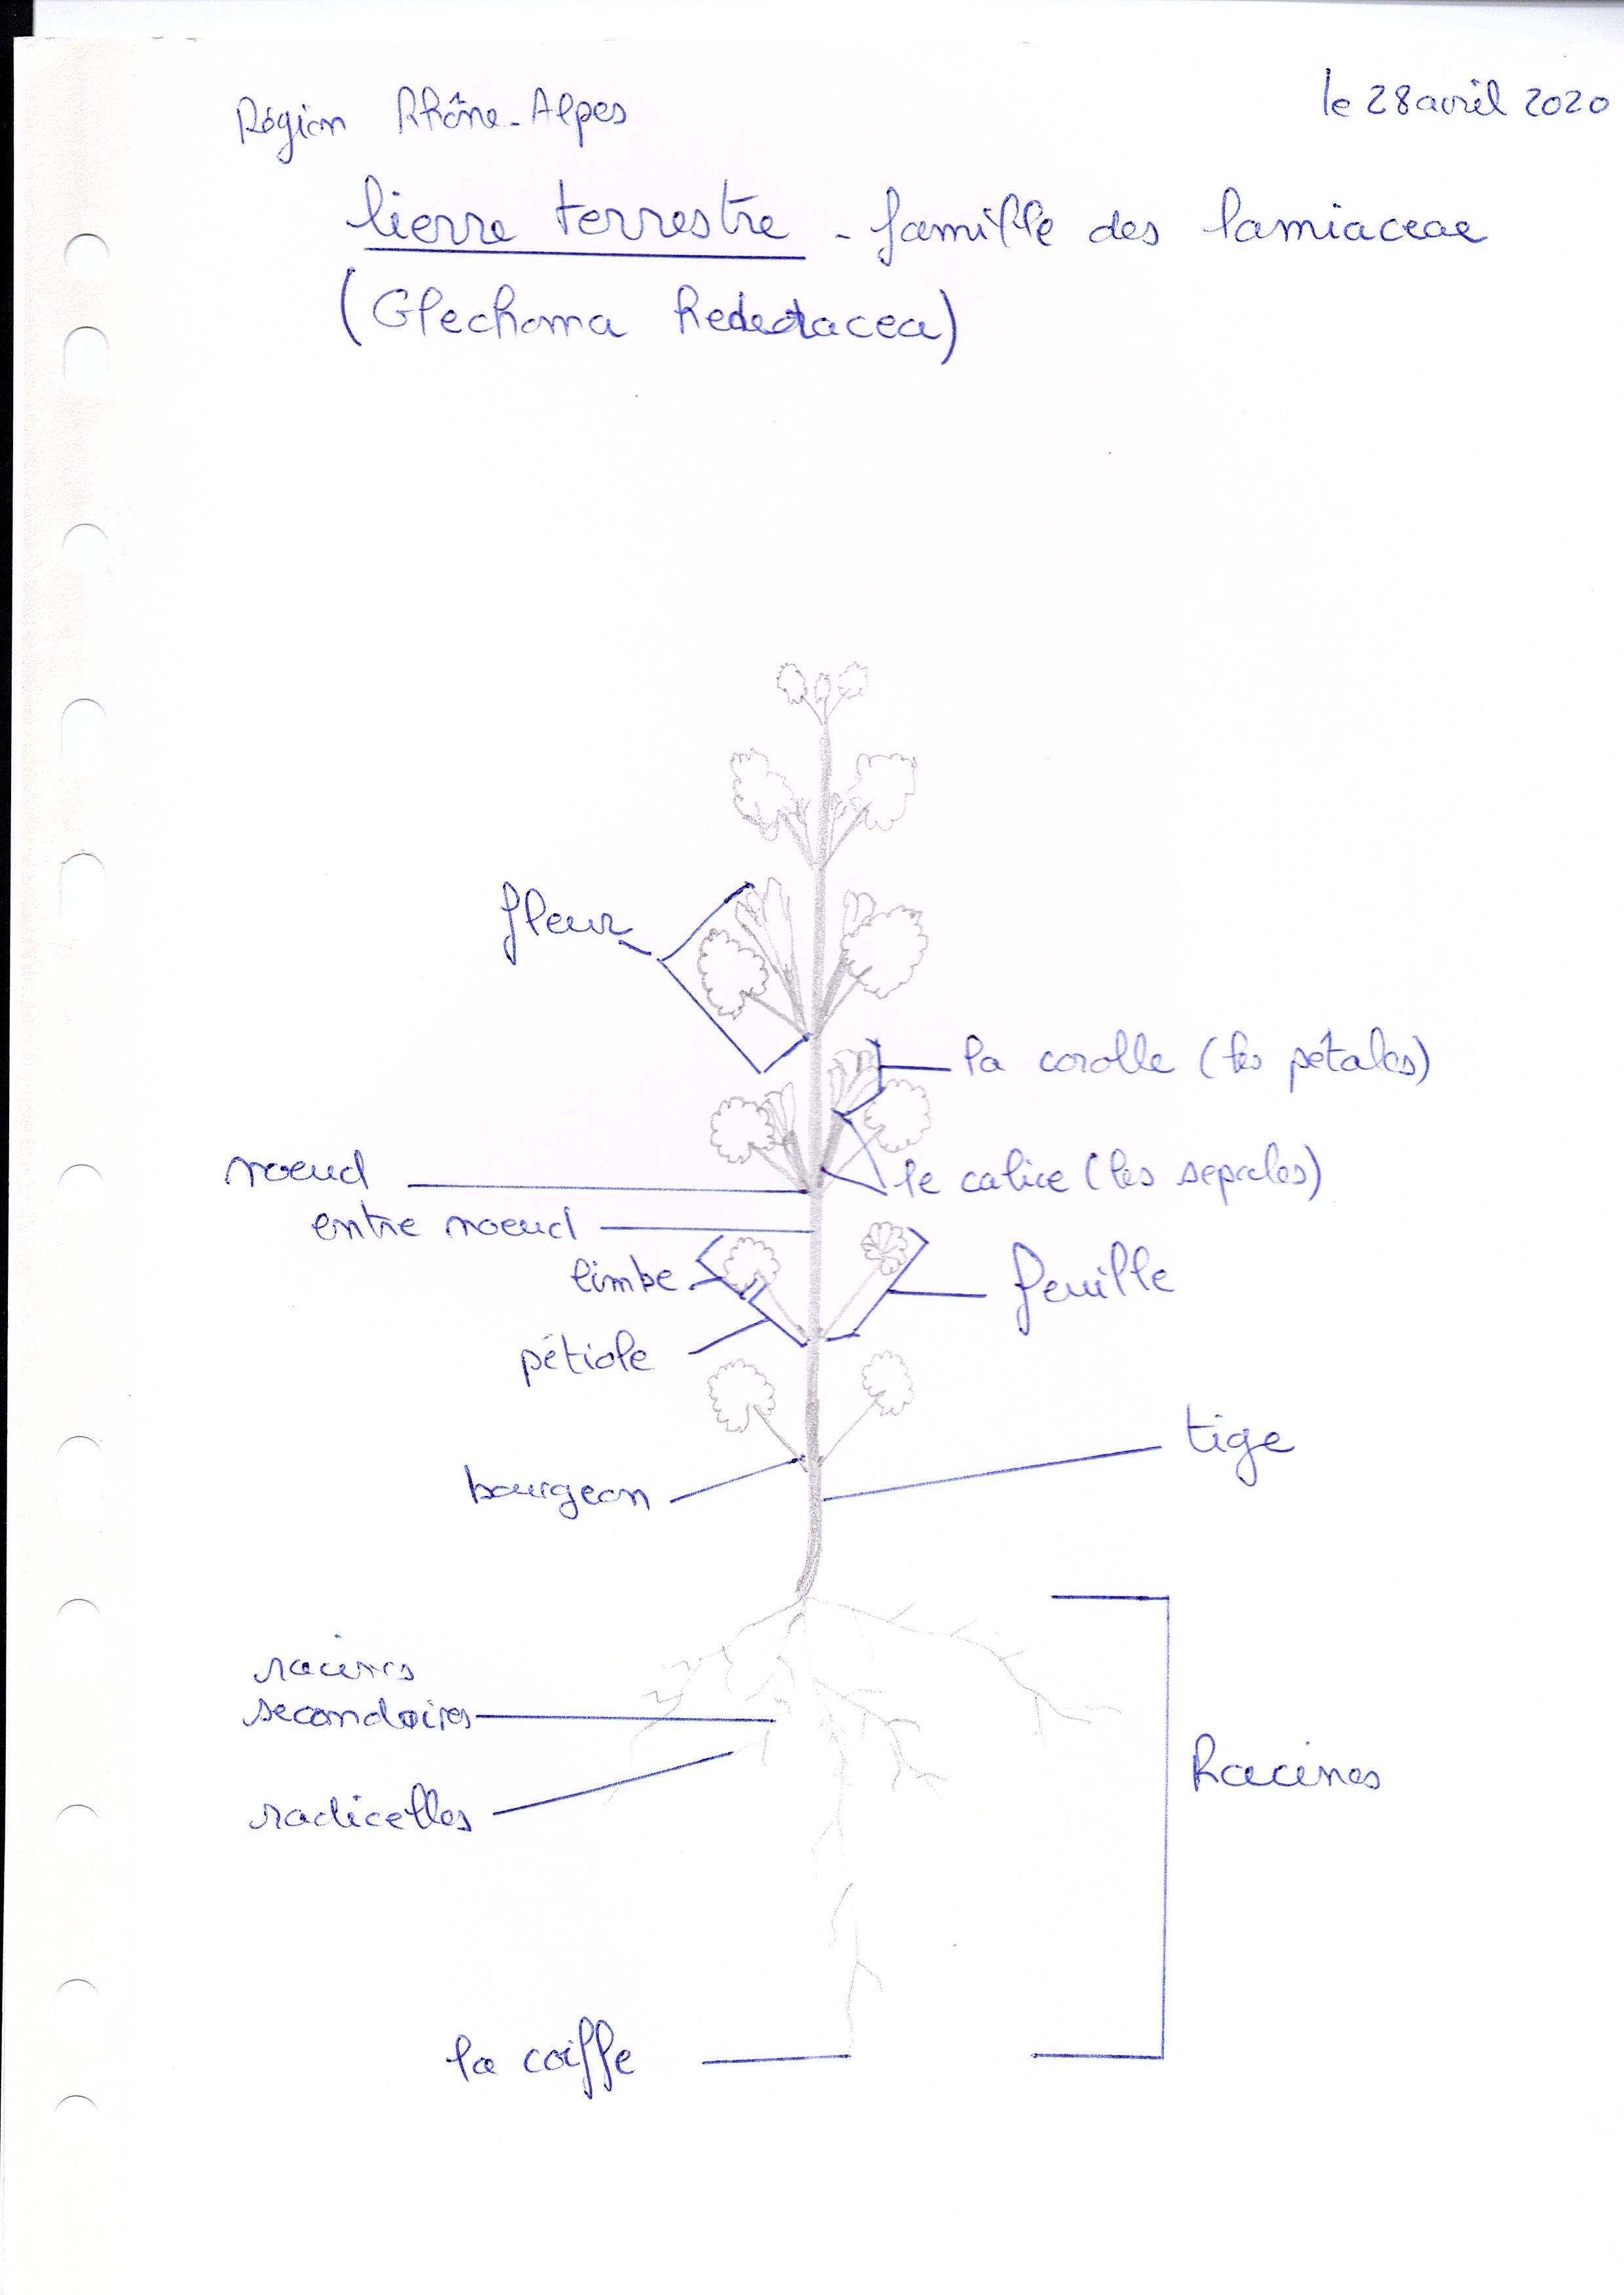 Région Rhône-Alpes
le 28 avril 2020
lierre terrestre - famille des lamiaceae
(Glechoma hederacea)
fleur
la corolle (les pétales)
noeud
le calice (les sepales)
entre noeud
limbe
feuille
pétiole
tige
bourgeon
racines
secondaires
Racines
radicelles
la coiffe